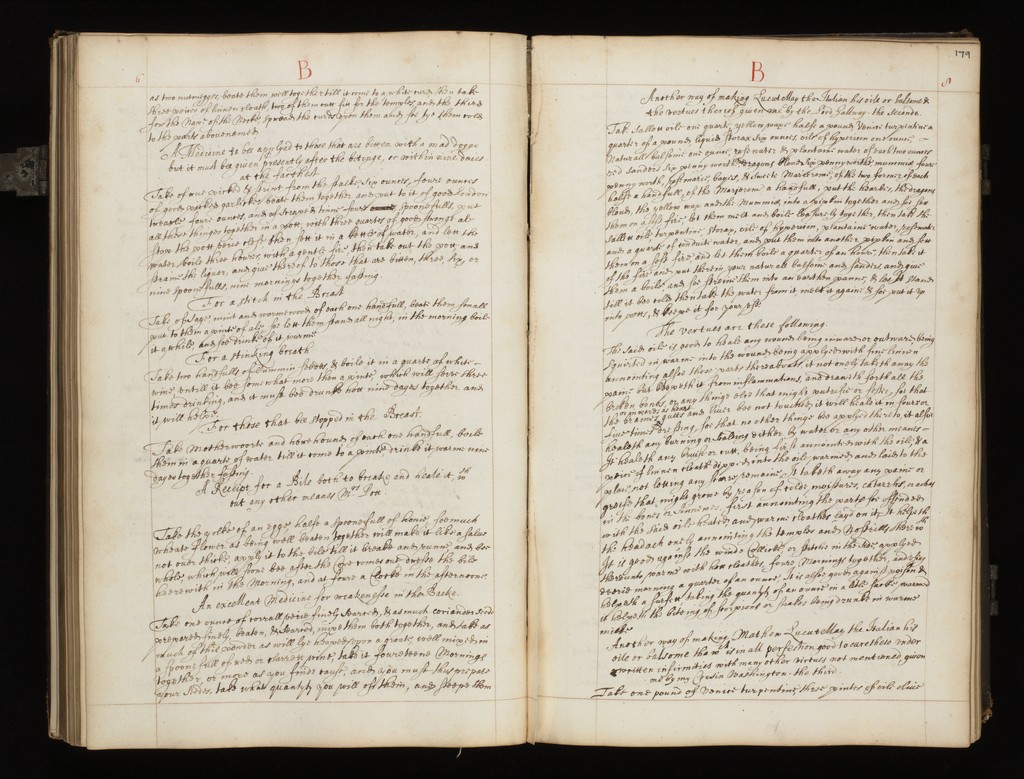 B
as two nutmegges, beate them well together till it come to a white curd then take
three peeces of linnen cloath, two of them cutt fitt for the temples, and the third
for the Nape of the Necke, spread the curd upon them and soe tye them cold
to the parts abovenamed.
A Medicine to bee applyed to those that are bitten with a mad dogge
but it must bee given presently after the biteinge, or within nine daies
at the farthest.
Take of rue picked & stript from the stalke, six ounces, foure ounces
of garlicke picked, beate them together and put to it of good London
treacle foure ounces, and of scraped tinne foure spoonefulls, put
all these things together in a pott, with three quarts of good stronge ale
stopp the pott verie close, then sett it in a kettle of water, and lett the
water boile three howers, with a gentle fire then take out the pott, and
straine the liquor, and give thereof to those that are bitten, three, six, or
nine spoonefulls, nine mornings together fasting.
For a stitch in the Breast
Take of Sage, mint and wormewood of each one handfull, beate them small
put to them a pinte of ale, soe lett them stand all night, in the morning boile
it a while, and soe drinke of it warme
For a stinking breath
Take two handfulls of Cummin seedes, & boile it in a quart of white-
wine, untill it bee some what more then a pinte, which will serve three
times drinking, and it must bee drunke hott nine dayes together and
it will helpe.
For those that bee stopped in the Breast.
Take Motherwoort and horehound of each one handfull, boile
them in a quart of water till it come to a pinte, drinke it warme nine
dayes together fasting.
A Receipt for a Bile both to breake and heale it, with
out any other meanes Mrs
Take the yolke of an egge halfe a spoonefull of honie, soe much
wheate flower as being well beaten together will make it like a salve
not over thicke, apply it to the bile till it breake and runne, and bee
whole, which will soone bee after the Core comes out, dresse the bile
herewith in the Morning, and at foure a Clocke in the afternoone.
An excellent Medicine for weakenesse in the Backe.
Take one ounce of corrall verie finely searced, & as much coriander Seed
prepared finely beaten, & searced, mixe them both together, and take as
much of this powder as will lye heaped upon a groate, well mixed in
a spoone full of red or clarret wine, take it fourteene Mornings
together, or more as you finde cause, and you must thus prepare
your Seedes, take what quantity you will of them, and steepe them
179
B
Another way of makeing Lucatellay the Italian his oile or balsome &
the vertues thereof given me by the Lord Gallway the Second.
Take Sallett oile one quart, yellow waxe halfe a pound, Venice turpentine a
quarter of a pound, liquid storax six ounces, oile of hypericon one ounce
Naturall balsome one ounce, rose water & plantaine water of each two ounces
red Sanders six penny worth, dragons bloud six penny worth, mummia, foure
penny worth, rosemarie, bayes, & sweete Marjerome, of the two former of each
halfe a handfull, of the Marjerom a handfull, put the hearbes, the dragons
bloud, the yellow wax and the Mummia, into a pipkin together and sett
them on a soft fire, let them melt and boile leasurely together, then take the
sallett oile, turpentine, storax, oile of hypericon, plantaine water, rosewater
and a quart of conduit water, and put them into another pipkin and sett
them on a soft fire and let them boile a quarter of an houre, then take it
of the fire and put therein, your naturall balsome and sanders, and give
them a boile, and soe straine them into an earthen panne, & let it stand
till it bee cold then take the water from it, melt it againe & soe put it up
into potts, & keepe it for your use.
The vertues are these following.
The said oile is good to heale any wound being inward or outward being
squirted in warme into the wound, being applyed with fine linnen
annointing alsoe those parts thereabout, it not onely takes away the
paine but keepeth it from inflammations, and draweth forth all the
broken bones, or any thinge else that might putrifie or fester, soe that
or inwards, as heart
the braines, gutts and liver bee not touched, it will heale it in foure or
five times dressing, soe that no other thinge bee applyed thereto, it alsoe
healeth any burning or scalding either by water or any other meanes
It healeth any bruise or cutt, being first annointed with the oile, & a
peece of linnen cloath dipped into the oile, warmed and laid to the
place, not letting any scarre remaine, It taketh away any paine or
greife that might grow by reason of colds, moistures, catarrhs, or aches
in the bones or sinewes, first annointing the parts soe offended
with the said oile heated, and warme cloathes layd on it, It helpeth
the headach onely annointing the temples and Nostrills therewth
It is good against the winde Collicke, or stitch in the side, applyed
thereunto, warme with hott cloathes, foure Mornings together, and
everie morning a quarter of an ounce. It is alsoe good against poison &
helpeth a surfett, taking the quantity of an ounce in a little sacke warmed
it helpeth the biteing of scorpions or snakes being drunke in warme
milke
Another way of making Mathew Lucatellay the Italian his
oile or balsome the wch is in all perfection good to cure these under
written infirmities with many other vertues not mentioned, given
me by my Cosin Washington the third.
Take one pound of Venice turpentine, three pintes of oile olive